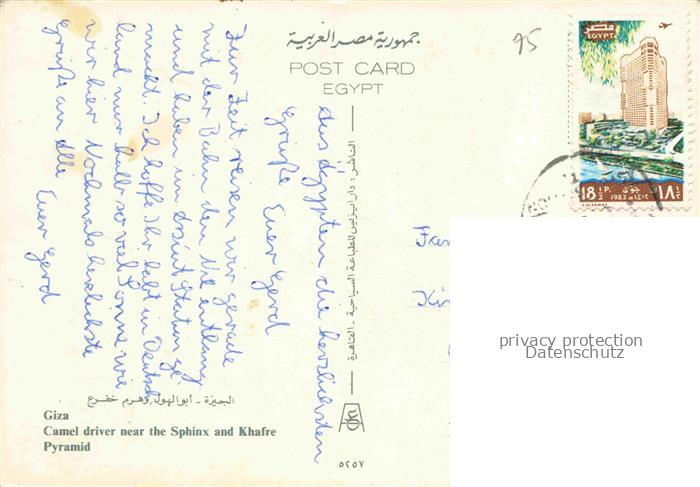 جمهورية مصر العربية
POST CARD
EGYPT
95
مصر
EGYPT
18 ½ P.
جوى
1982
١٨ ½
Aus Ägypten die herzlichsten
Grüße Euer Gerd
Zur Zeit reisen wir gerade
mit der Bahn den Nil entlang
und haben in Assiut Station ge-
macht. Ich hoffe Ihr habt in Deutsch-
land nur halb so viel Sonne wie
wir hier. Nochmals herzlichste
Grüße an alle
Euer Gerd
الناشر: دار ايزيس للطباعة السياحية - القاهرة
Fam
privacy protection
Datenschutz
الجيزة - أبوالهول وهرم خفرع
Giza
Camel driver near the Sphinx and Khafre
Pyramid
٥٢٥٧